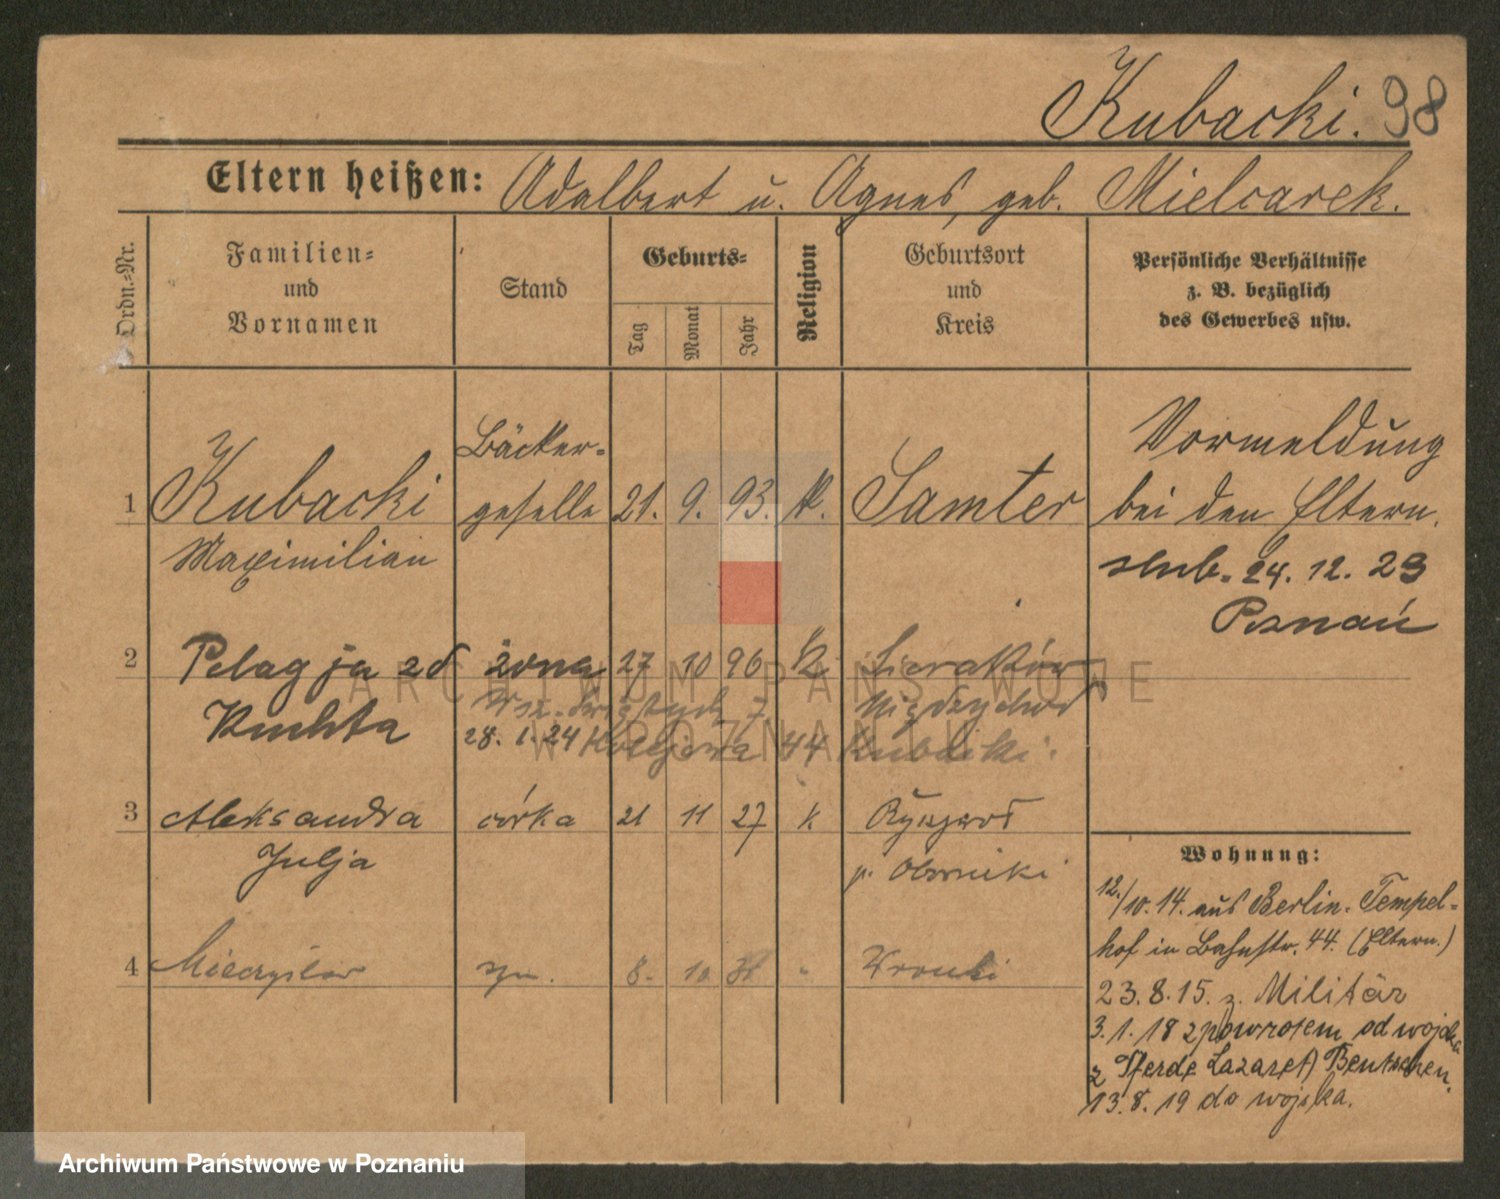 Kubacki. 98
Eltern heißen: Adalbert u. Agnes, geb. Mielcarek.
Ordn.-Nr.
Familien- und Vornamen
Stand
Geburts-
Tag
Monat
Jahr
Religion
Geburtsort und Kreis
Persönliche Verhältnisse z. B. bezüglich des Gewerbes usw.
1 Kubacki Bäcker- geselle 21. 9. 93. k. Samter Vormeldung
bei den Eltern.
Maximilian
ślub. 24. 12. 23
Poznań
2 Pelagja zd żona 27 10 96 k Sieraków
Kuchta Wsz. Świętych 7. Międzychod
28. 1. 24 Kolejowa 44 Kubacki
3 Aleksandra córka 21 11 27 k Ryczywół
Julja p. Oborniki
4 Mieczysław syn. 8. 10 31 " Wronki
Wohnung:
12./10. 14. aus Berlin-Tempel-
hof in Bahnstr. 44. (Eltern.)
23. 8. 15. z. Militär
3. 1. 18 z powrotem od wojska
z Pferde Lazaret) Bentschen.
13. 8. 19 do wojska.
ARCHIWUM PAŃSTWOWE
W POZNANIU
Archiwum Państwowe w Poznaniu